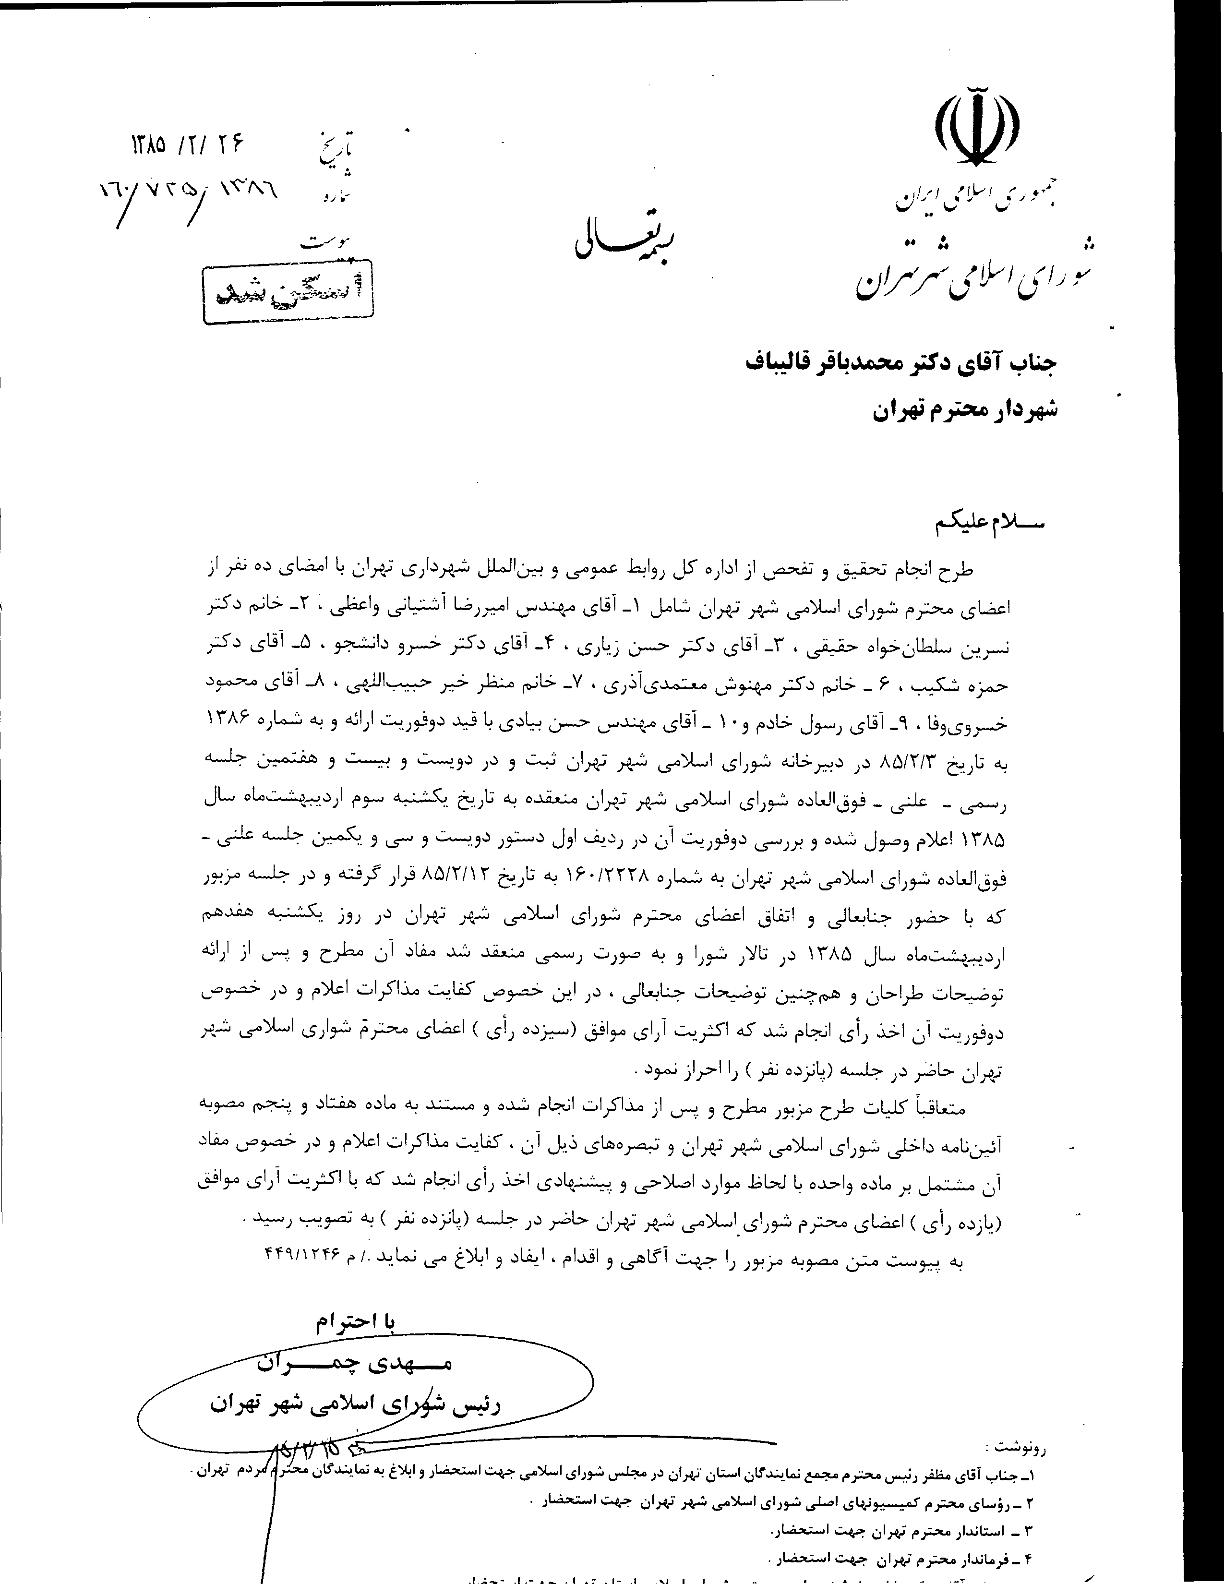 جمهوری اسلامی ایران
شورای اسلامی شهر تهران
بسمه تعالی
تاریخ ۱۳۸۵ /۲/ ۲۶
شماره ۱۶۰/۷۲۵/۱۳۸۶
پیوست
اسکن شد
جناب آقای دکتر محمدباقر قالیباف
شهردار محترم تهران
سلام علیکم
طرح انجام تحقیق و تفحص از اداره کل روابط عمومی و بین‌الملل شهرداری تهران با امضای ده نفر از
اعضای محترم شورای اسلامی شهر تهران شامل ۱ـ آقای مهندس امیررضا آشتیانی واعظی ، ۲ـ خانم دکتر
نسرین سلطان‌خواه حقیقی ، ۳ـ آقای دکتر حسن زیاری ، ۴ـ آقای دکتر خسرو دانشجو ، ۵ـ آقای دکتر
حمزه شکیب ، ۶ ـ خانم دکتر مهنوش معتمدی‌آذری ، ۷ـ خانم منظر خیر حبیب‌اللهی ، ۸ـ آقای محمود
خسروی‌وفا ، ۹ـ آقای رسول خادم و۱۰ ـ آقای مهندس حسن بیادی با قید دوفوریت ارائه و به شماره ۱۳۸۶
به تاریخ ۸۵/۲/۳ در دبیرخانه شورای اسلامی شهر تهران ثبت و در دویست و بیست و هفتمین جلسه
رسمی ـ علنی ـ فوق‌العاده شورای اسلامی شهر تهران منعقده به تاریخ یکشنبه سوم اردیبهشت‌ماه سال
۱۳۸۵ اعلام وصول شده و بررسی دوفوریت آن در ردیف اول دستور دویست و سی و یکمین جلسه علنی ـ
فوق‌العاده شورای اسلامی شهر تهران به شماره ۱۶۰/۲۲۲۸ به تاریخ ۸۵/۲/۱۲ قرار گرفته و در جلسه مزبور
که با حضور جنابعالی و اتفاق اعضای محترم شورای اسلامی شهر تهران در روز یکشنبه هفدهم
اردیبهشت‌ماه سال ۱۳۸۵ در تالار شورا و به صورت رسمی منعقد شد مفاد آن مطرح و پس از ارائه
توضیحات طراحان و هم‌چنین توضیحات جنابعالی ، در این خصوص کفایت مذاکرات اعلام و در خصوص
دوفوریت آن اخذ رأی انجام شد که اکثریت آرای موافق (سیزده رأی ) اعضای محترم شواری اسلامی شهر
تهران حاضر در جلسه (پانزده نفر ) را احراز نمود .
متعاقباً کلیات طرح مزبور مطرح و پس از مذاکرات انجام شده و مستند به ماده هفتاد و پنجم مصوبه
آئین‌نامه داخلی شورای اسلامی شهر تهران و تبصره‌های ذیل آن ، کفایت مذاکرات اعلام و در خصوص مفاد
آن مشتمل بر ماده واحده با لحاظ موارد اصلاحی و پیشنهادی اخذ رأی انجام شد که با اکثریت آرای موافق
(یازده رأی ) اعضای محترم شورای اسلامی شهر تهران حاضر در جلسه (پانزده نفر ) به تصویب رسید .
به پیوست متن مصوبه مزبور را جهت آگاهی و اقدام ، ایفاد و ابلاغ می نماید ./ م ۴۴۹/۱۲۴۶
با احترام
مهدی چمران
رئیس شورای اسلامی شهر تهران
رونوشت :
۱ـ جناب آقای مظفر رئیس محترم مجمع نمایندگان استان تهران در مجلس شورای اسلامی جهت استحضار و ابلاغ به نمایندگان محترم مردم تهران .
۲ ـ رؤسای محترم کمیسیونهای اصلی شورای اسلامی شهر تهران جهت استحضار .
۳ ـ استاندار محترم تهران جهت استحضار.
۴ ـ فرماندار محترم تهران جهت استحضار .